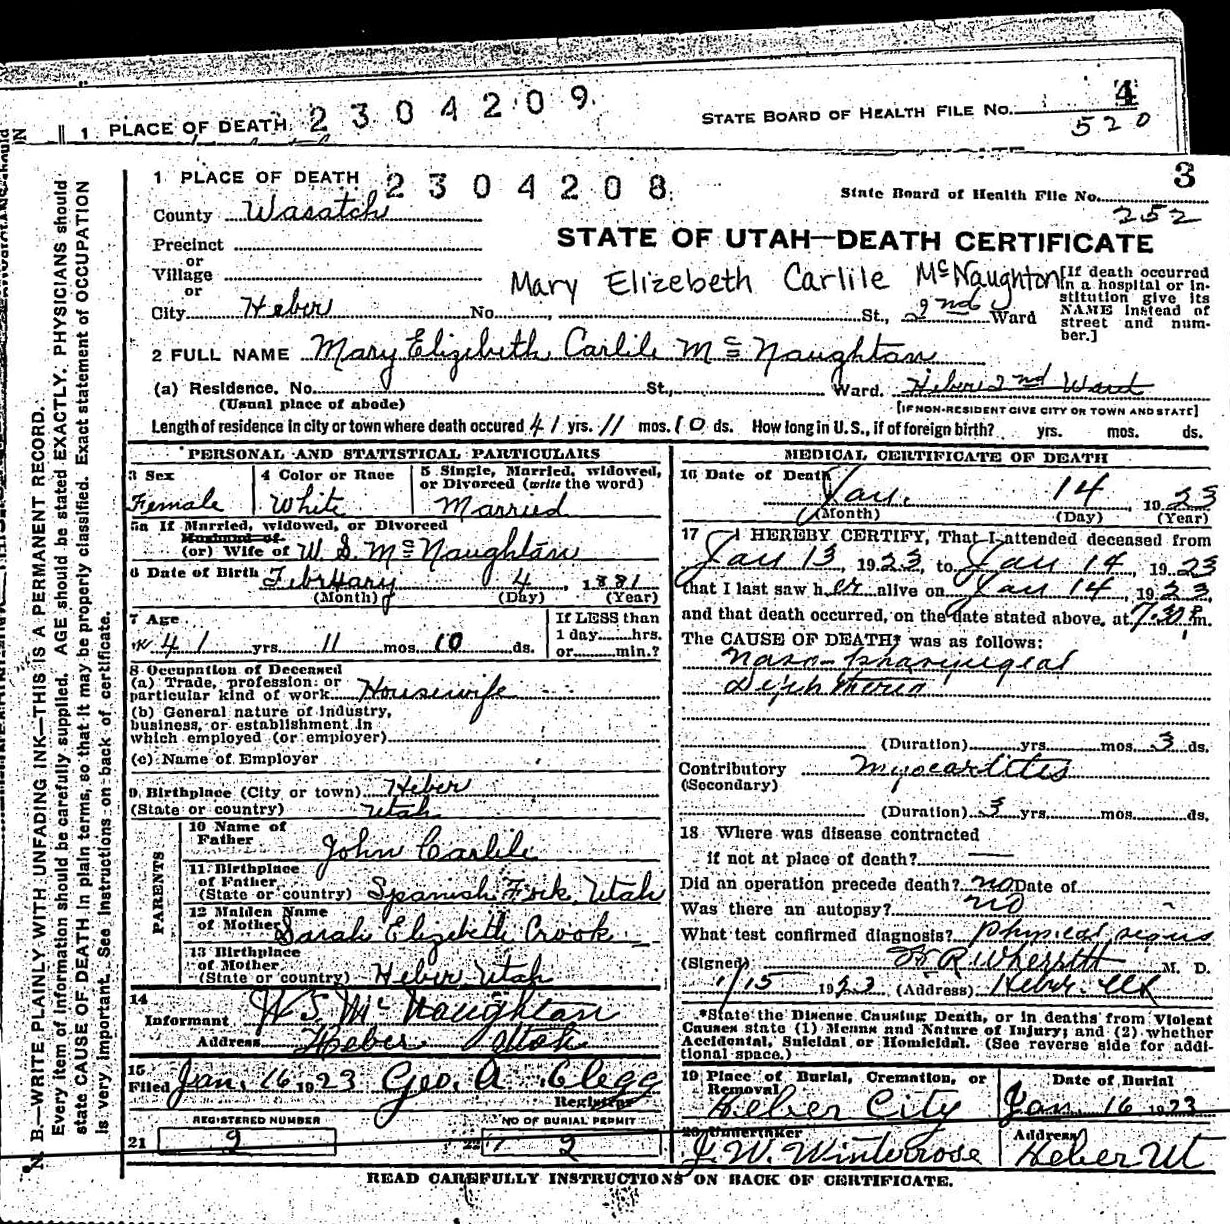 1 PLACE OF DEATH 2304209
STATE BOARD OF HEALTH FILE No. 4
520
1 PLACE OF DEATH 2304208
State Board of Health File No. 3
252
County Wasatch
STATE OF UTAH—DEATH CERTIFICATE
Precinct
or
Village
or
Mary Elizebeth Carlile McNaughton
[If death occurred in a hospital or institution give its NAME instead of street and number.]
City Heber No. St., 2nd Ward
2 FULL NAME Mary Elizebeth Carlile McNaughtan
(a) Residence, No. St., Ward. Heber 2nd Ward
(Usual place of abode)
[IF NON-RESIDENT GIVE CITY OR TOWN AND STATE]
Length of residence in city or town where death occured 41 yrs. 11 mos. 10 ds. How long in U.S., if of foreign birth? yrs. mos. ds.
PERSONAL AND STATISTICAL PARTICULARS
3 Sex
Female
4 Color or Race
White
5 Single, Married, widowed,
or Divorced (write the word)
Married
5a If Married, widowed, or Divorced
Husband of
(or) Wife of W. S. McNaughtan
6 Date of Birth February 4, 1881
(Month) (Day) (Year)
7 Age
41 yrs. 11 mos. 10 ds.
If LESS than
1 day......hrs.
or......min.?
8 Occupation of Deceased
(a) Trade, profession or
particular kind of work Housewife
(b) General nature of industry,
business, or establishment in
which employed (or employer)
(c) Name of Employer
9 Birthplace (City or town) Heber
(State or country) Utah
PARENTS
10 Name of
Father John Carlile
11 Birthplace
of Father
(State or country) Spanish Fork, Utah
12 Maiden Name
of Mother Sarah Elizebeth Crook
13 Birthplace
of Mother
(State or country) Heber, Utah
14
Informant W S McNaughtan
Address Heber Utah
15
Filed Jan. 16 1923 Geo. A. Clegg
Registrar
REGISTERED NUMBER
21 9
NO OF BURIAL PERMIT
22 2
MEDICAL CERTIFICATE OF DEATH
16 Date of Death
Jan. 14, 1923
(Month) (Day) (Year)
17 I HEREBY CERTIFY, That I attended deceased from
Jan 13, 1923, to Jan 14, 1923
that I last saw her alive on Jan 14, 1923,
and that death occurred, on the date stated above, at 7:30 P. m.
The CAUSE OF DEATH* was as follows:
Naso-pharyngeal
Diphtheria
(Duration) yrs. mos. 3 ds.
Contributory Myocarditis
(Secondary)
(Duration) 3 yrs. mos. ds.
18 Where was disease contracted
if not at place of death? —
Did an operation precede death? no Date of
Was there an autopsy? no
What test confirmed diagnosis? Physical signs
(Signed) Wherritt M. D.
1/15 1923 (Address) Heber, Utah
*State the Disease Causing Death, or in deaths from Violent
Causes state (1) Means and Nature of Injury; and (2) whether
Accidental, Suicidal or Homicidal. (See reverse side for addi-
tional space.)
19 Place of Burial, Cremation, or
Removal
Heber City
Date of Burial
Jan. 16 1923
20 Undertaker
J. W. Winterrose
Address
Heber Ut
READ CAREFULLY INSTRUCTIONS ON BACK OF CERTIFICATE.
N. B.—WRITE PLAINLY WITH UNFADING INK—THIS IS A PERMANENT RECORD.
Every item of information should be carefully supplied. AGE should be stated EXACTLY. PHYSICIANS should
state CAUSE OF DEATH in plain terms, so that it may be properly classified. Exact statement of OCCUPATION
is very important. See instructions on back of certificate.